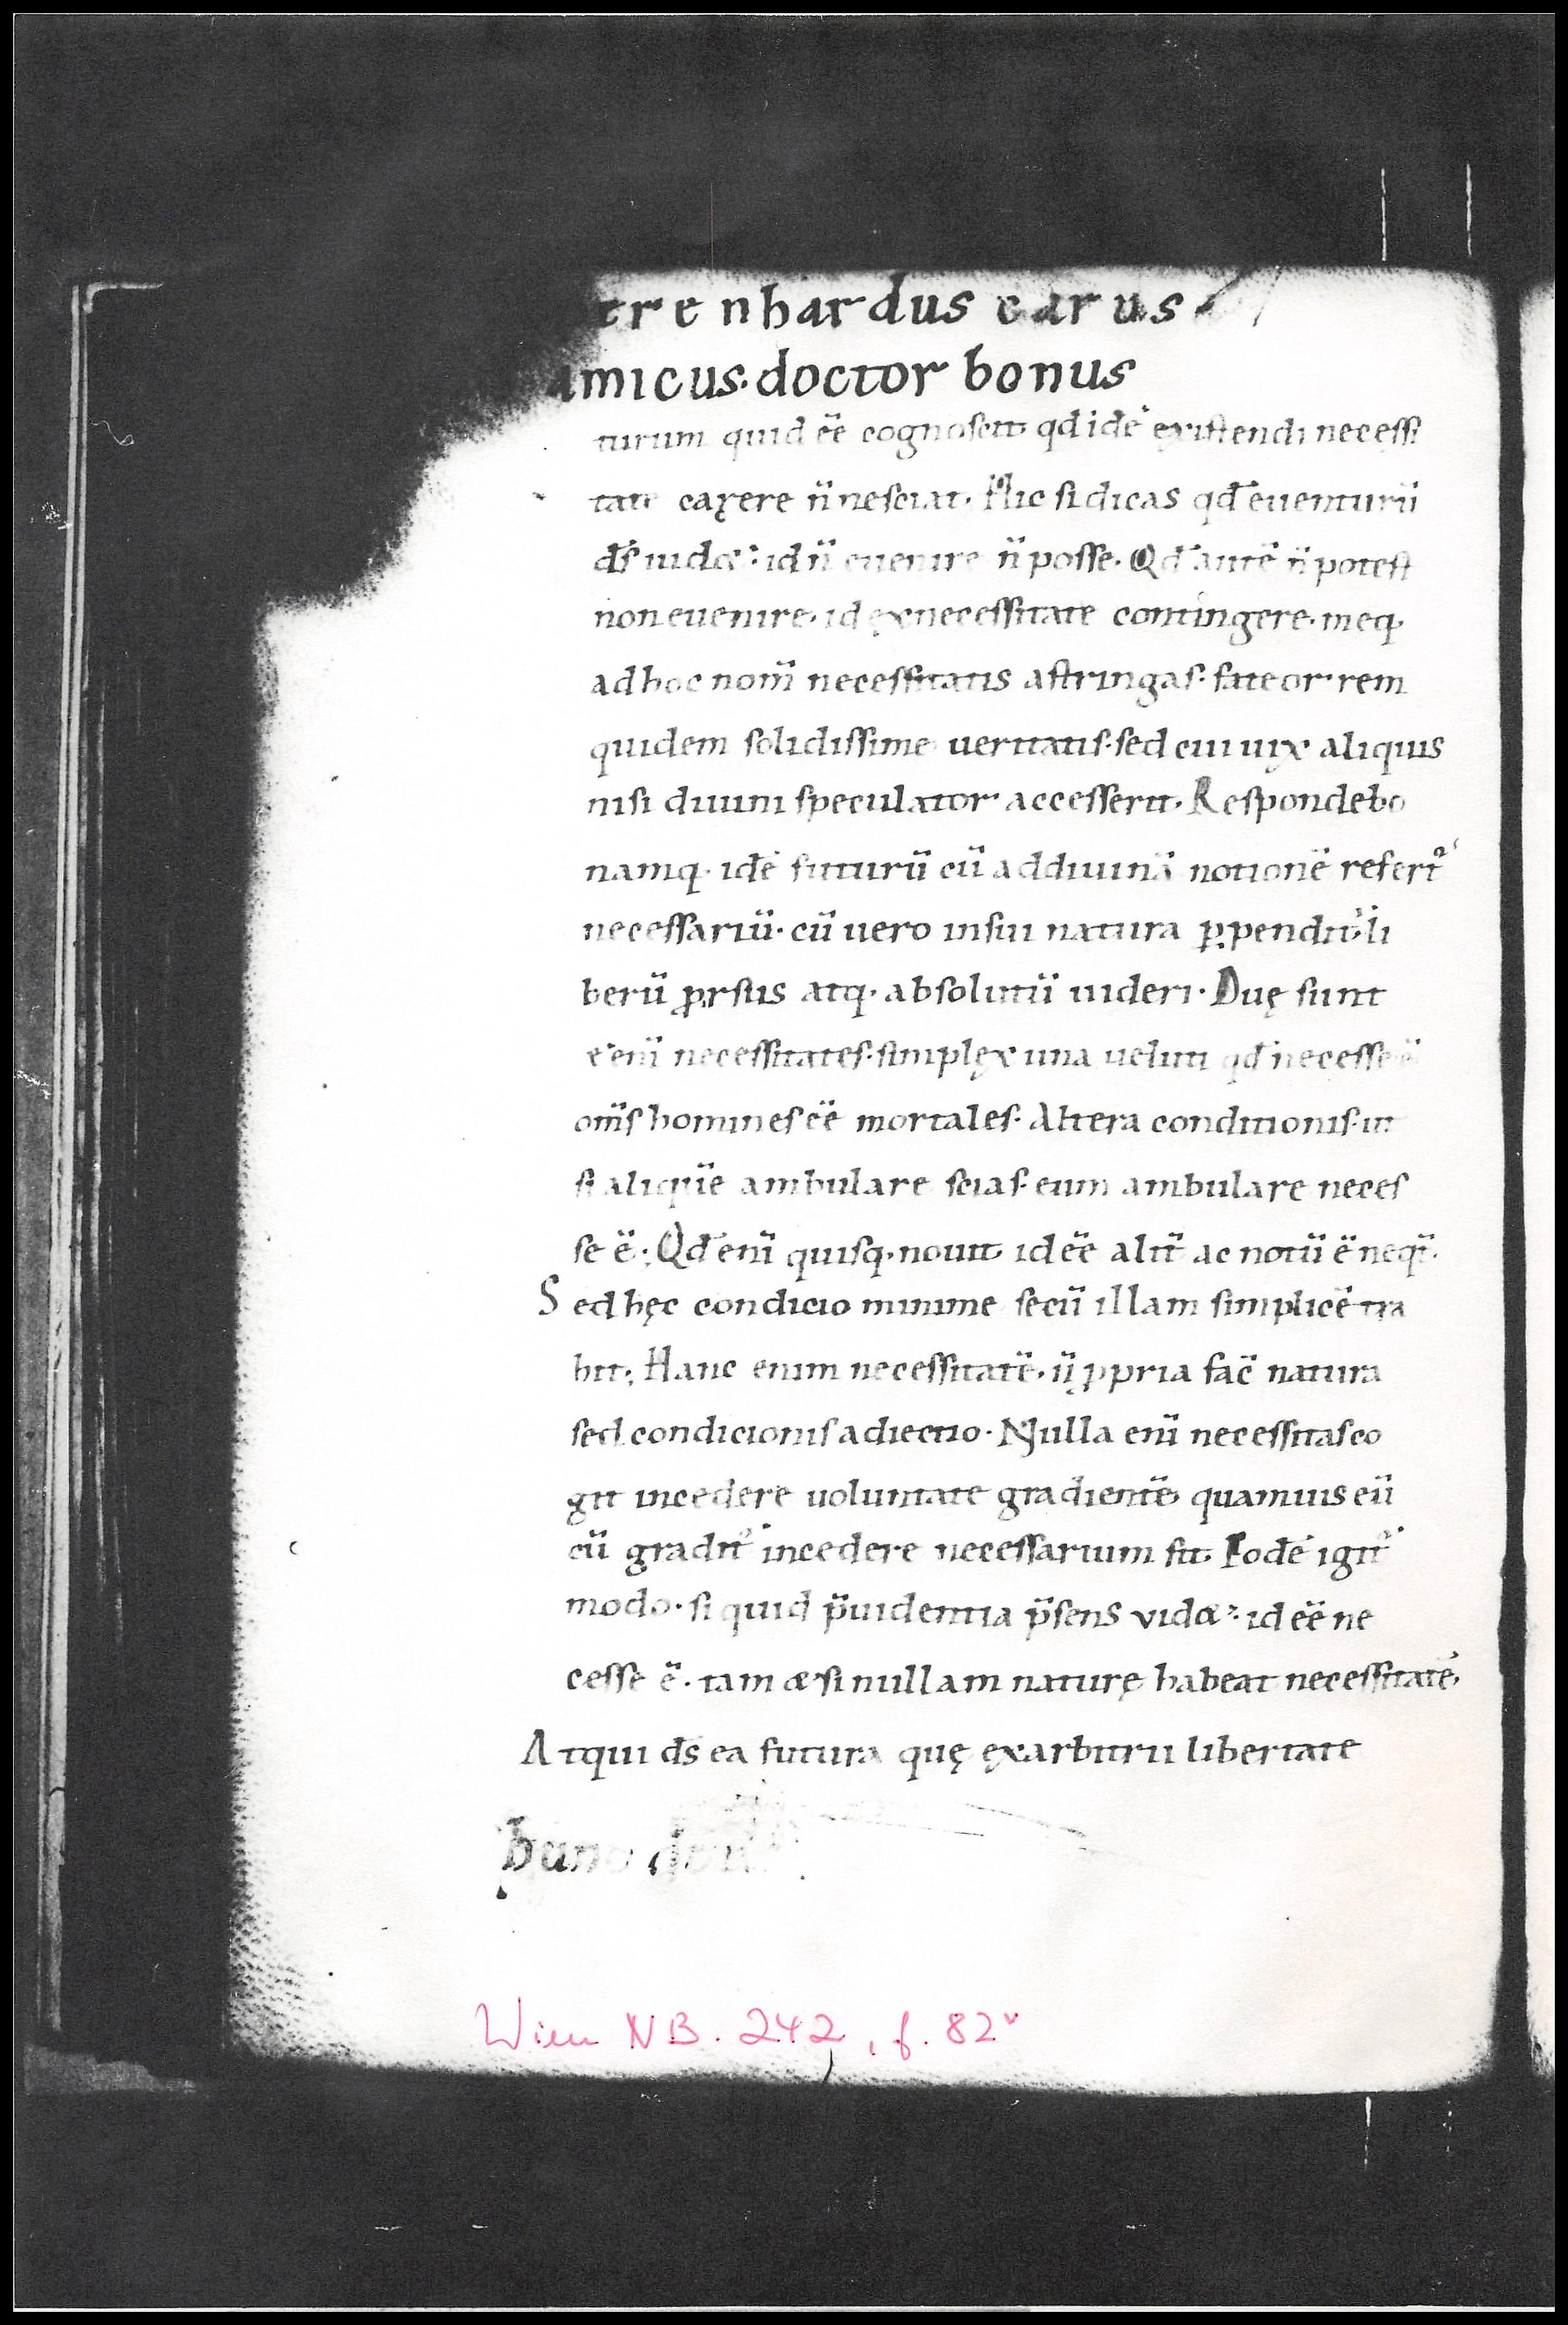 tre nhardus carus
amicus · doctor bonus
turum quid ēe cognoscit qđ idē existendi necessi
tate carere n̄ nesciat. Hic si dicas qđ euenturū
ds̄ uidet: id n̄ euenire n̄ posse. Qđ autē n̄ potest
non euenire. id ex necessitate contingere. meq.
ad hoc nom̄ necessitatis astringas. fateor rem
quidem solidissime ueritatis. sed cui uix aliquis
nisi diuini speculator accesserit. Respondebo
namq. idē futurū cū ad diuinā notionē refert᷑
necessariū. cū uero in sui natura ꝑpendit᷑ li
berū ꝓrsus atq. absolutū uideri. Duę sunt
etenī necessitates. simplex una ueluti qđ necesse ē
om̄s homines ēe mortales. Altera conditionis. ut
si aliquē ambulare scias. eum ambulare neces
se ē. Qđ enī quisq. nouit id ēe alit̄ ac notū ē neq̄t.
Sed hęc condicio minime secū illam simplicē tra
hit; Hanc enim necessitatē. n̄ ꝓpria fac̄ natura
sed condicionis adiectio. Nulla enī necessitas co
git incedere uoluntate gradientē quamuis eū
cū gradit᷑ incedere necessarium sit. Eodē igit᷑
modo. si quid p̄uidentia p̄sens videt: id ēe ne
cesse ē. tam etsi nullam naturę habeat necessitatē.
Atqui ds̄ ea futura quę ex arbitrii libertate
Wien NB. 242, f. 82v